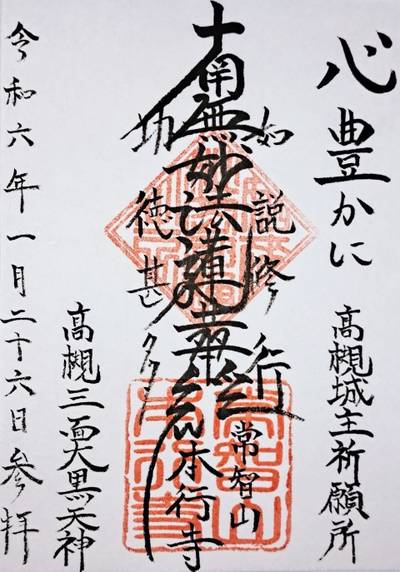 心豊かに
高槻城主祈願所
如説修行
南無妙法蓮華経
功徳甚多
常智山
本行寺
高槻三面大黒天神
令和六年一月二十六日参拝